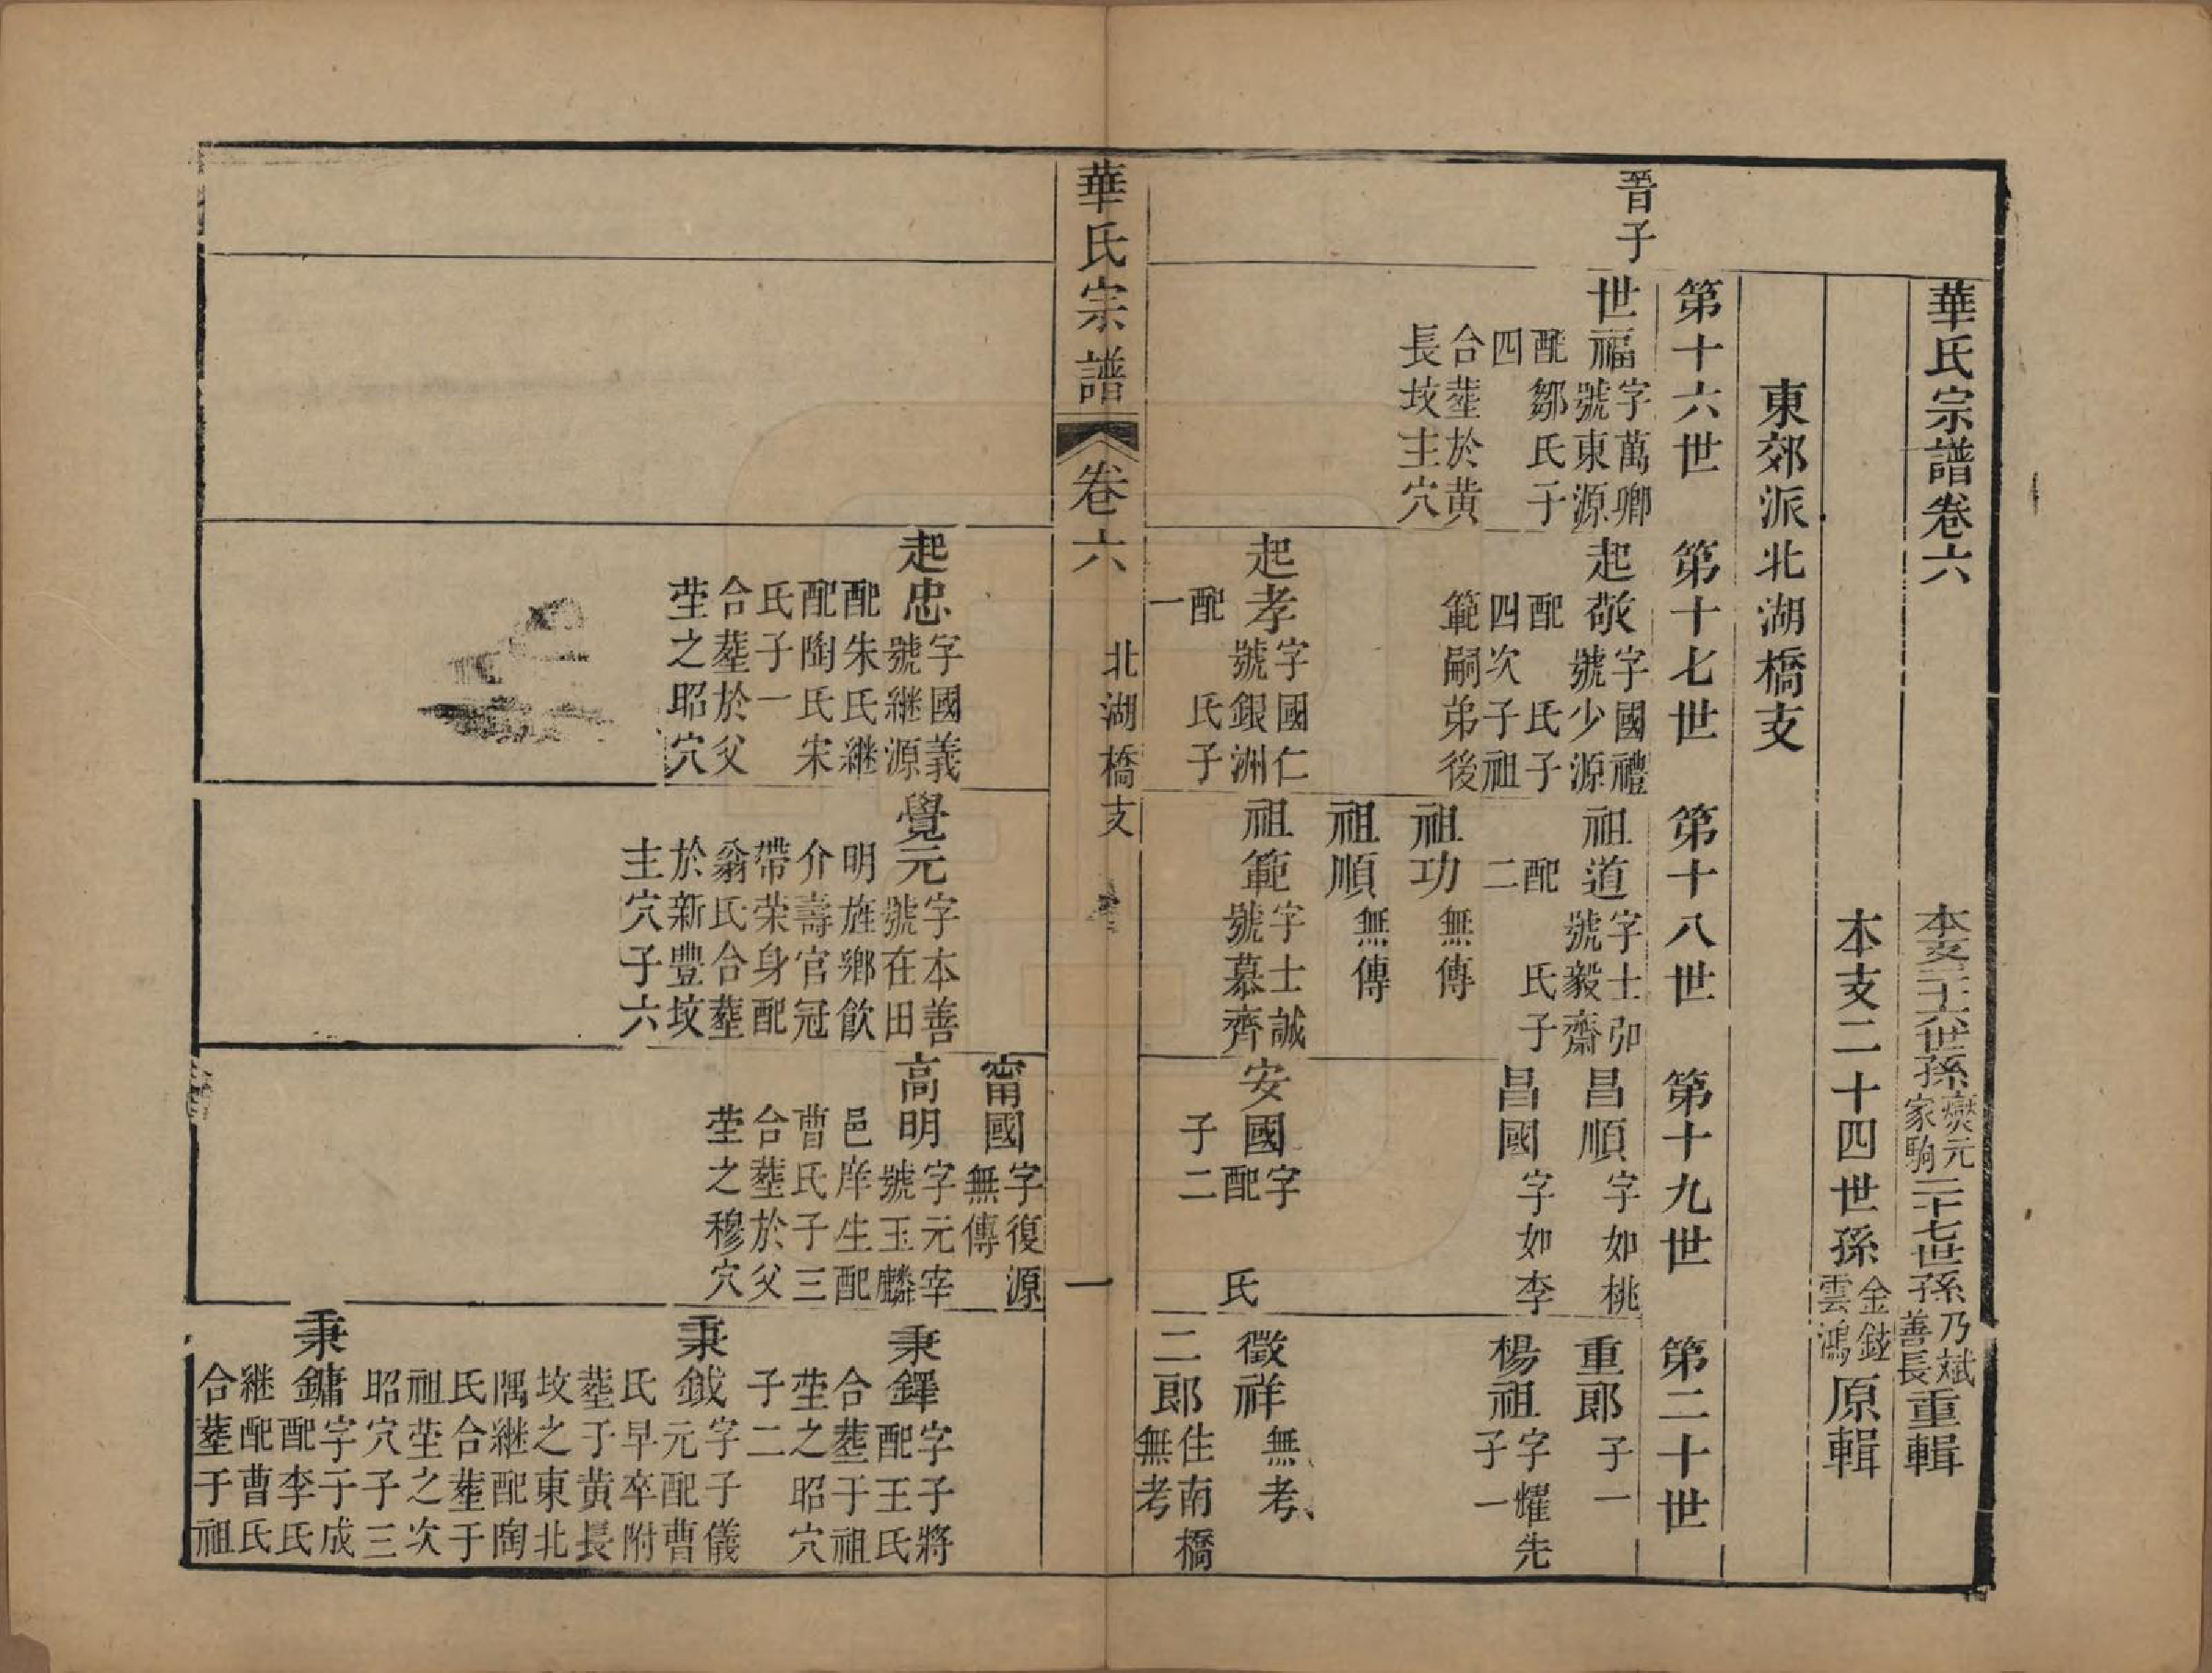 華氏宗譜卷六
本支二十六世孫爕元家駒二十七世孫乃斌善長重輯
本支二十四世孫金鉞雲鴻原輯
東郊派北湖橋支
第十六世
第十七世
第十八世
第十九世
第二十世
晋子
世福
字萬卿
號東源
配鄒氏子
四
合塟於黄
長坟主穴
起敬
字國禮
號少源
配 氏子
四次子祖
範嗣弟後
祖道
字士卯
號毅齋
配 氏子
二
昌順
字如桃
重郎
子一
昌國
字如李
楊祖
字耀先
子一
祖功
無傳
祖順
無傳
起孝
字國仁
號銀洲
配 氏子
一
祖範
字士誠
號慕齊
安國
字
配 氏
子二
徵祥
無考
二郎
住南橋
無考
華氏宗譜
卷六
北湖橋支
一
甯國
字復源
無傳
起忠
字國義
號継源
配朱氏継
配陶氏宋
氏子一
合塟於父
塋之昭穴
覺元
字本善
號在田
明旌鄉飲
介壽官冠
帶荣身配
翁氏合塟
於新豐坟
主穴子六
高明
字元宰
號玉麟
邑庠生配
曹氏子三
合塟於父
塋之穆穴
秉鐸
字子將
配王氏
合塟于祖
塋之昭穴
子二
秉鉞
字子儀
元配曹
氏早卒附
塟于黄長
坟之東北
隅継配陶
氏合塟于
祖塋之次
昭穴子三
秉鏞
字于成
配李氏
継配曹氏
合塟于祖